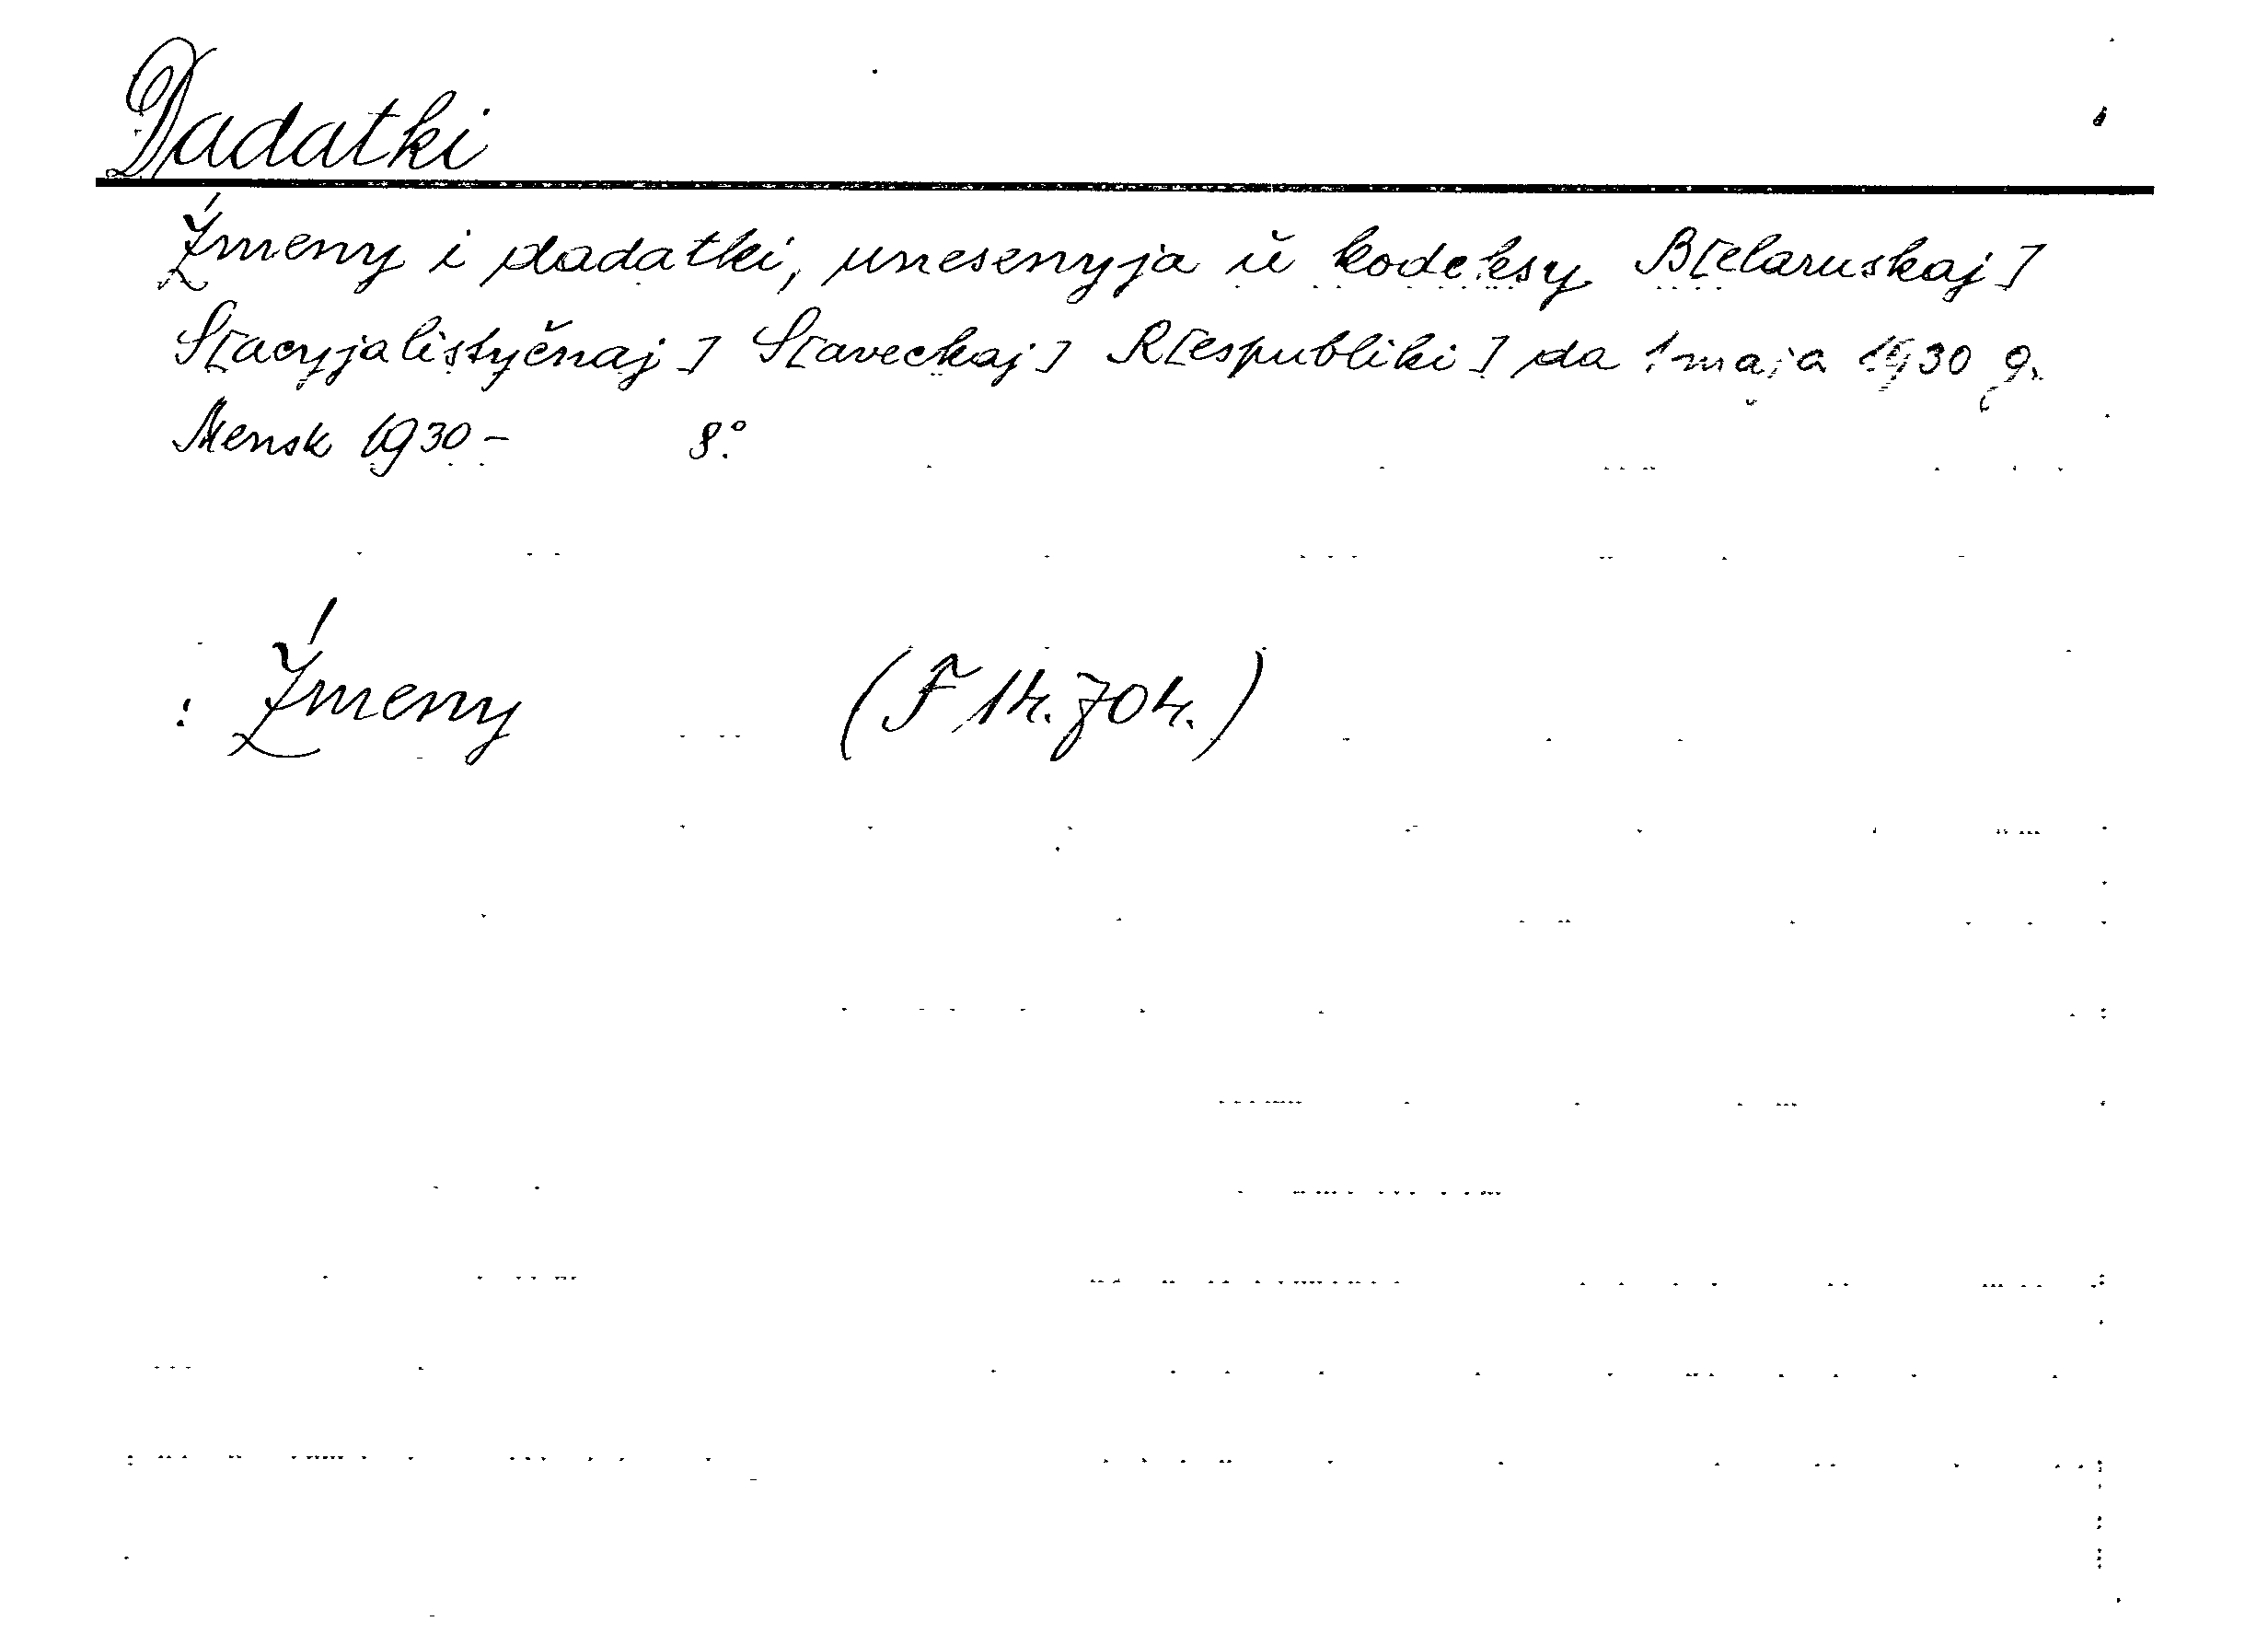 Dadatki
Źmeny i dadatki, unesenyja ŭ kodeksy B[elaruskaj]
S[acyjalistyčnaj] S[aveckaj] R[espubliki] da 1 maja 1930 g.
Mensk 1930 - 8°.
Źmeny (F 14.704.)